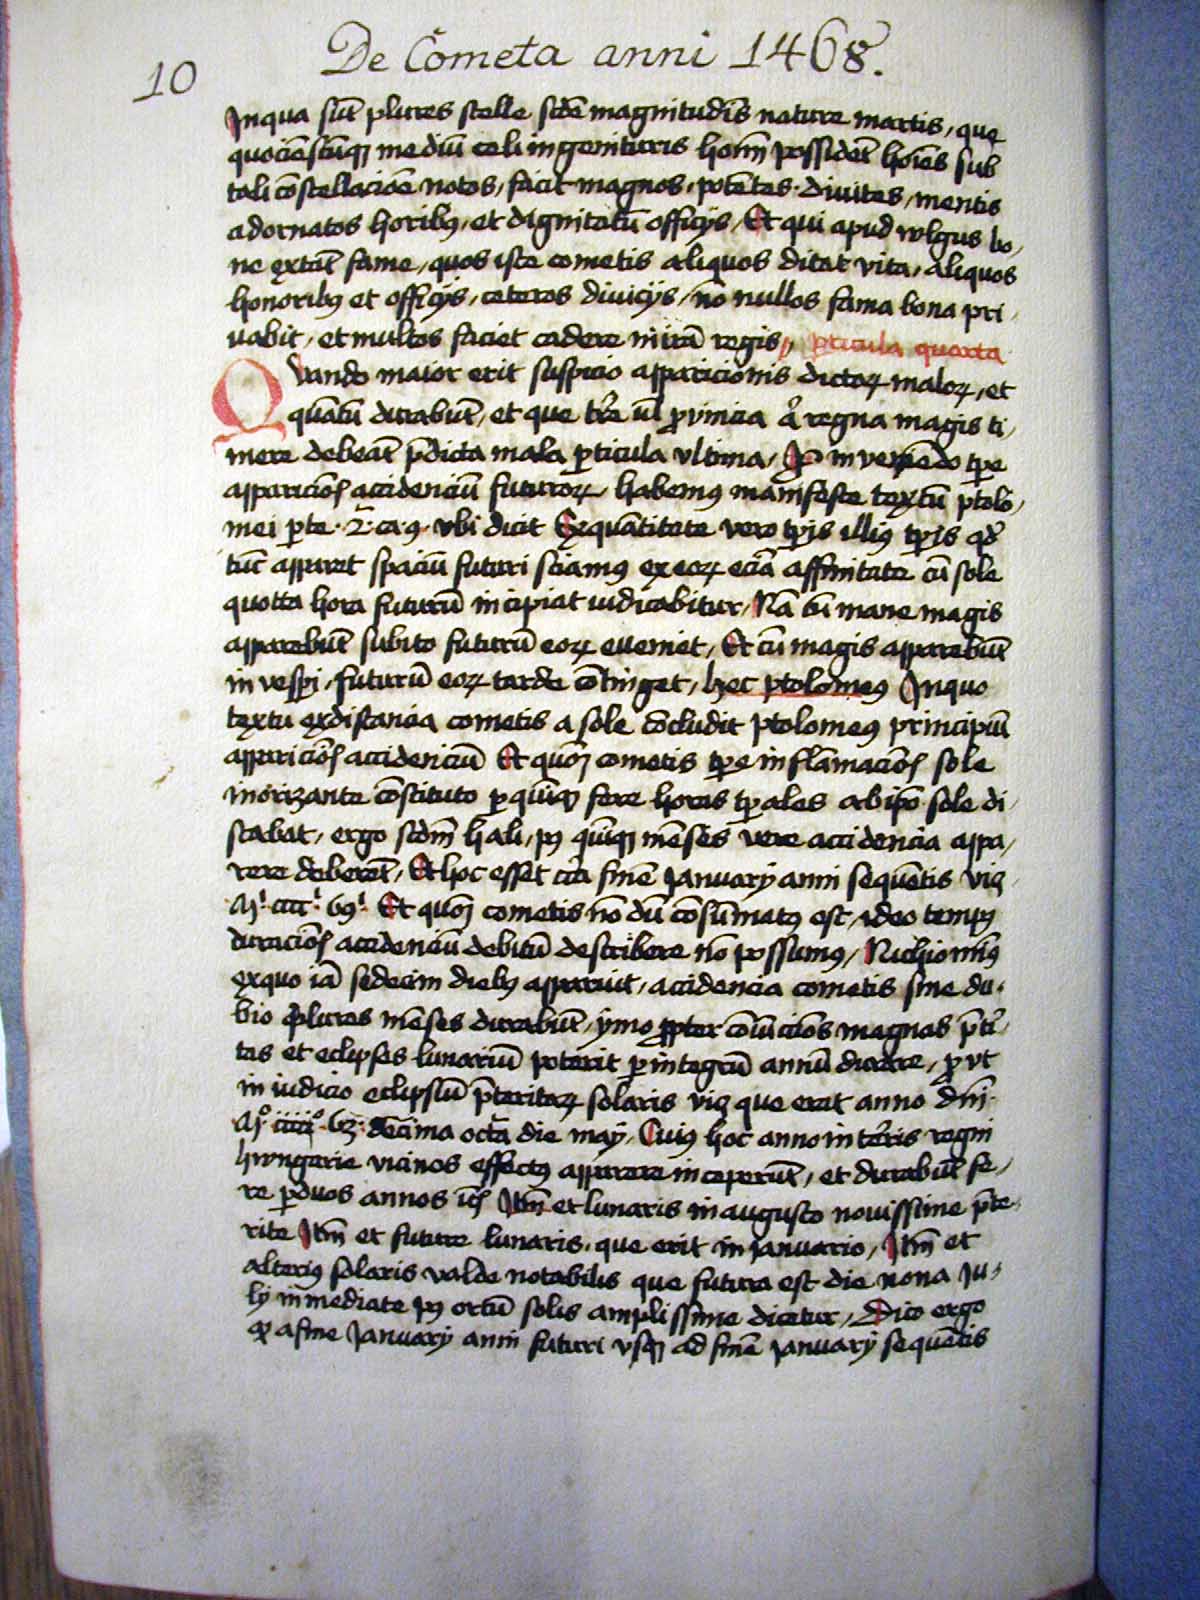 De Cometa anni 1468.
10
Inqua sūt plures stelle scđe magnitudīs nature martis, que
quociēscūqꝫ mediū celi in genituris hoīm possidēt hoīes sub
tali cōstellaciōe notos, facit magnos, potētes, divites, mentis
adornatos horibꝰ, et dignitatū officijs, Et qui apud wlgus bo,
ne extāt fame, quos iste cometis aliquos ditat vita, aliquos
honoribꝰ et officijs, ceteros divicijs, nō nullos fama bona pri,
vabit, et multos faciet cadere in irā regis, pticula quarta
Quando maior erit suspicio apparicionis dictoꝝ maloꝝ, et
quātū durabūt, et que tr̄e ūl ꝓvincia regna magis ti,
mere debeāt p̄dicta mala ꝑticula ultima, In veniēdo tꝑe
appariciōs accidenciū futuroꝝ, habemꝰ manifeste textū ptolo,
mei ꝑte 2 ca 9 ubi dicit Exquātitate vero tꝑis illiꝰ tꝑis qđ
tūc apparet spaciū futuri sciamꝰ ex eoꝝ eciā affinitate cū sole
quotta hora futurū incipiat iudicabitur, Nā cū mane magis
apparebūt subito futurū eoꝝ eveniet, Et cū magis apparebūt
in vesꝑi, futurū eoꝝ tarde cōtinget, hec ptolomeꝰ Inquo
textu exdistancia cometis a sole cōcludit ptolomeꝰ principiū
appariciōs accidenciū Et quoꝫ cometis tꝑe inflāmaciōs sole
in orizante cōstituto ꝑ quīqꝫ fere horas tꝑales ab ipō sole di,
stabat, ergo scđm hali, pꝰ quīqꝫ mēses vere accidencia appa,
rere deberēt, Et hoc esset circa finē January anni sequētis viꝫ
Mⁱ ccccⁱ 69ⁱ Et quoꝫ cometis nō dū cōsūmatꝰ est, ideo tempꝰ
duraciōs accidenciū debitū describere nō possumꝰ, Nichiominꝰ
exquo iā sedecim diebꝰ apparuit, accidencia cometis sine du,
bio plures mēses durabūt, ymo ꝓpter cōiūcciōs magnas p̄teri,
tas et eclipses lunariū poterit ꝑ integrū annū durare, ꝓut
in iudicio eclipsiū p̄teritaꝝ solaris viꝫ que erat anno dn̄i
Mº ccccº 6 decima octā die may, Cuiꝰ hoc anno in tr̄is regni
hwngarie vicinos effectꝰ apparere inceperūt, et durabūt fe,
re ꝑ duos annos Itm̄ et lunaris in augusto novissime p̄te,
rite Itm̄ et future lunaris, que erit in januario, Itm̄ et
alteriꝰ solaris valde notabilis que futura est die nona Ju,
ly īmediate pꝰ ortū solis amplissime dicetur, Dico ergo
ꝙ a fine January anni futuri usqꝫ ad finē January sequētis